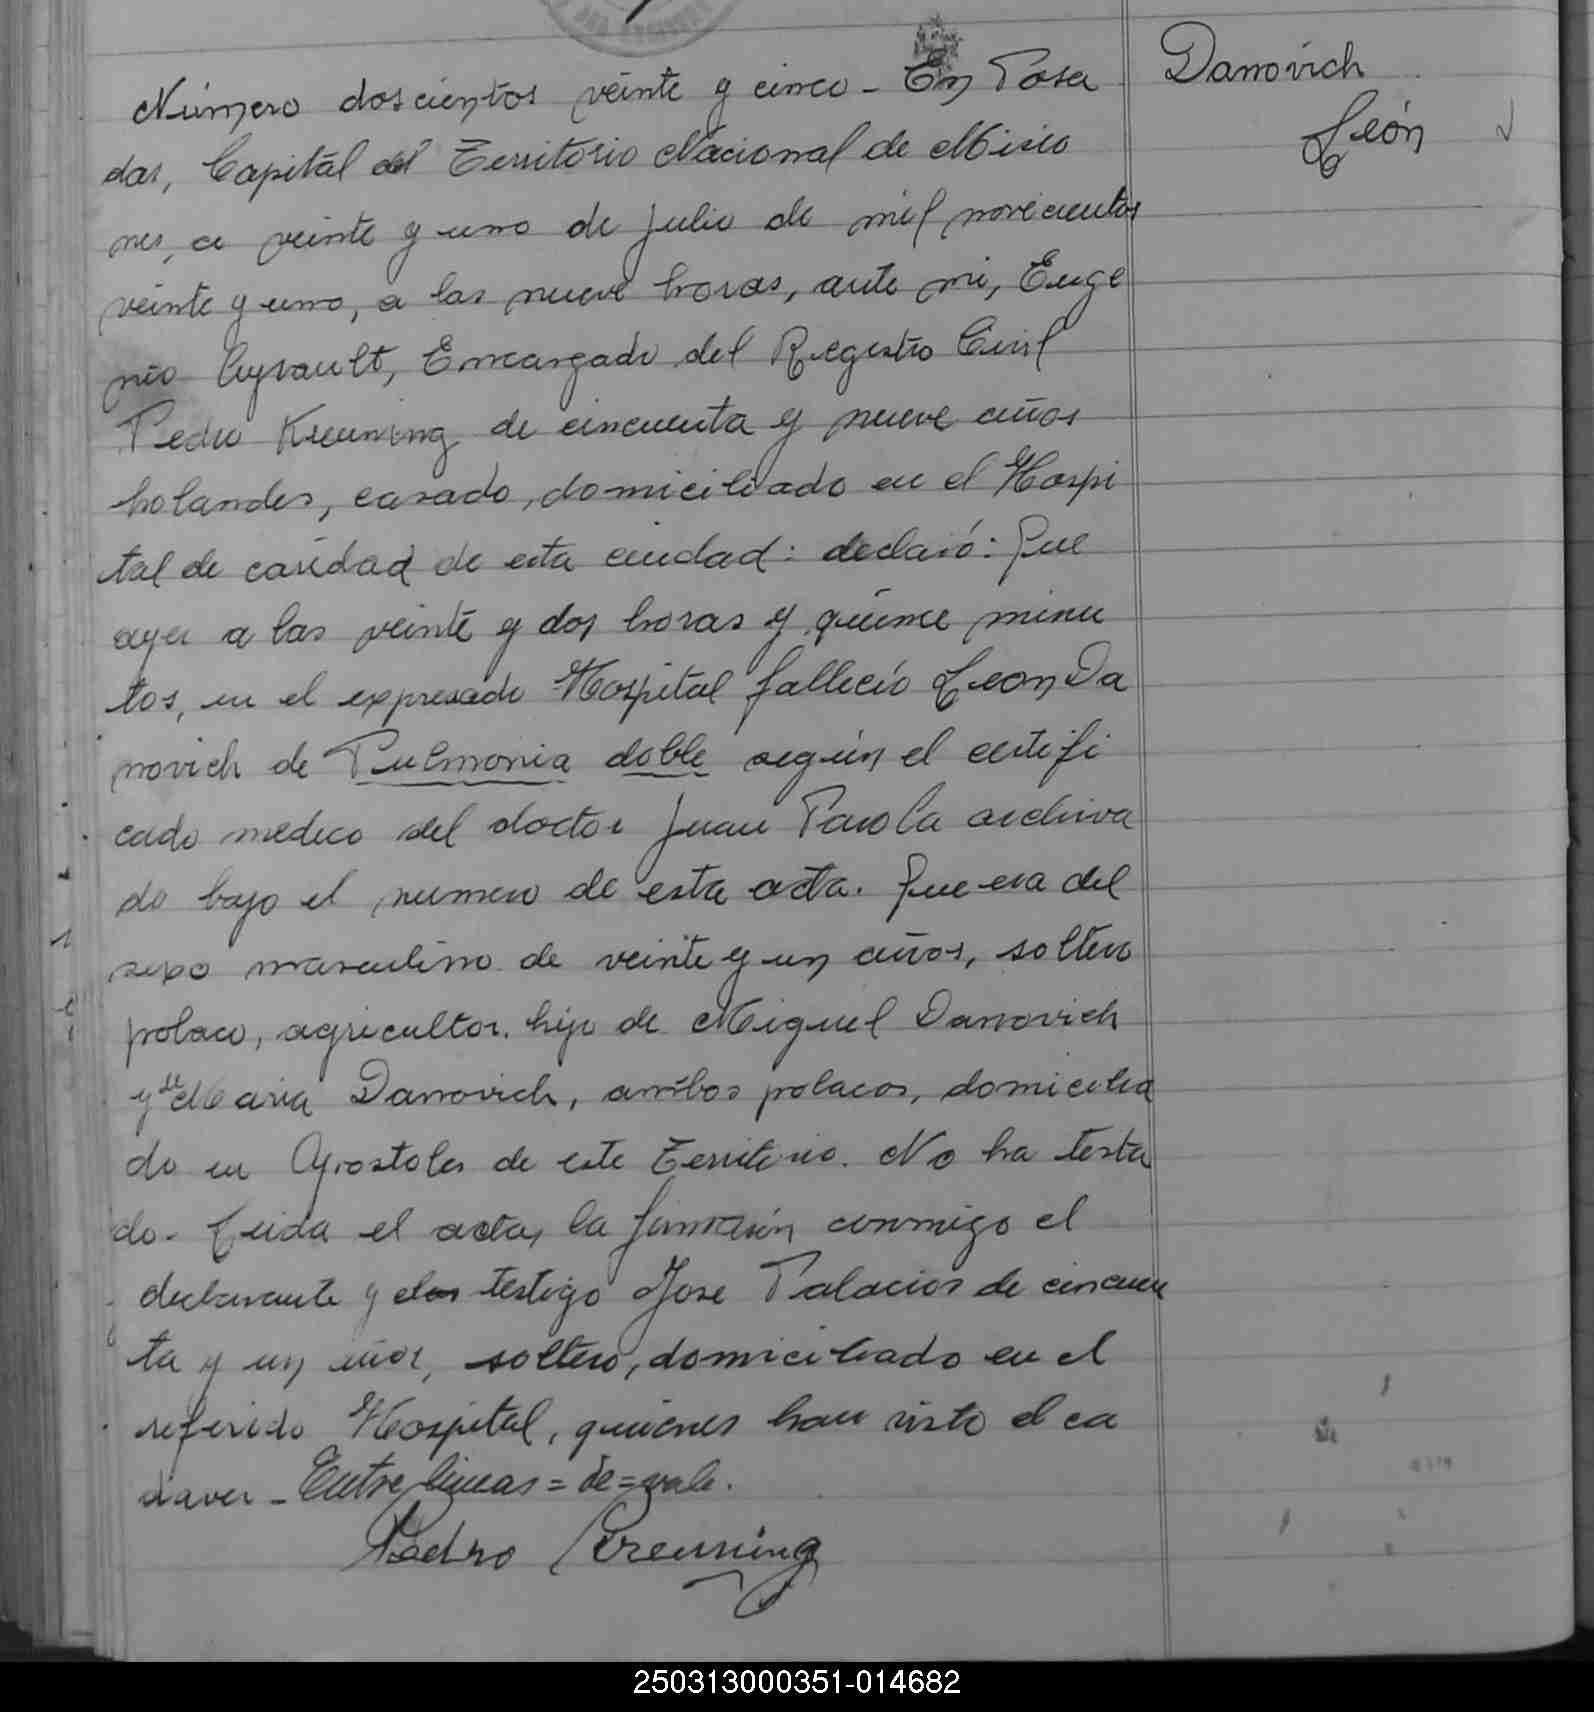 Danovich
León
Número doscientos veinte y cinco - En Posa
das, Capital del Territorio Nacional de Misio
nes, a veinte y uno de Julio de mil novecientos
veinte y uno, a las nueve horas, ante mi, Euge
nio Ayrault, Encargado del Registro Civil
Pedro Kreuning de cincuenta y nueve años
holandes, casado, domiciliado en el Hospi
tal de caridad de esta ciudad: declaró: Que
ayer a las veinte y dos horas y quince minu
tos, en el expresado Hospital falleció Leon Da
novich de Pulmonia doble según el certifi
cado medico del doctor Juan Parola archiva
do bajo el numero de esta acta. Que era del
sexo masculino de veinte y un años, soltero
polaco, agricultor. hijo de Miguel Danovich
y de Maria Danovich, ambos polacos, domicilia
do en Apostoles de este Territorio. No ha testa
do - Leida el acta, la firmarón conmigo el
declarante y el testigo José Palacios de cincuen
ta y un años, soltero, domiciliado en el
referido Hospital, quienes han visto el ca
daver - Entre lineas = de = vale.
Pedro Kreuning
250313000351-014682